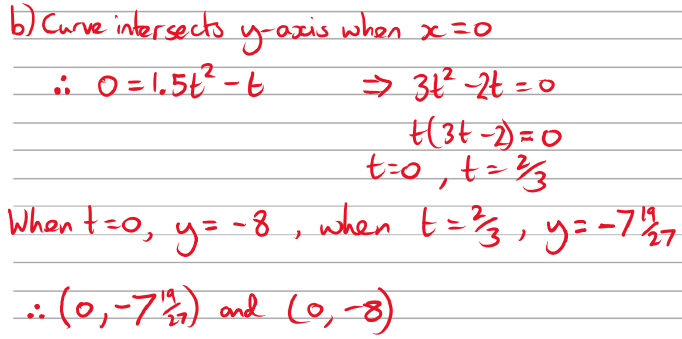 b) Curve intersects y-axis when x = 0
∴ 0 = 1.5t² - t ⇒ 3t² - 2t = 0
t(3t - 2) = 0
t = 0, t = 2/3
When t = 0, y = -8, when t = 2/3, y = -7 19/27
∴ (0, -7 19/27) and (0, -8)